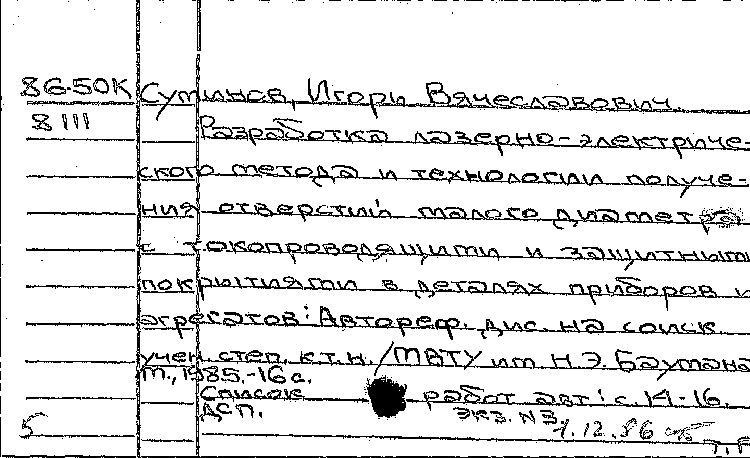 86-50К Сутинов, Игорь Вячеславович.
8111 Разработка лазерно-электриче-
ского метода и технологии получе-
ния отверстий малого диаметра
с токопроводящими и защитными
покрытиями в деталях приборов и
агрегатов: Автореф. дис. на соиск.
учен. степ. к.т.н. / МВТУ им. Н.Э. Баумана
М., 1985.-16 с.
Список работ авт.: с. 14-16.
ДСП. экз. N 3.
5 1.12.86